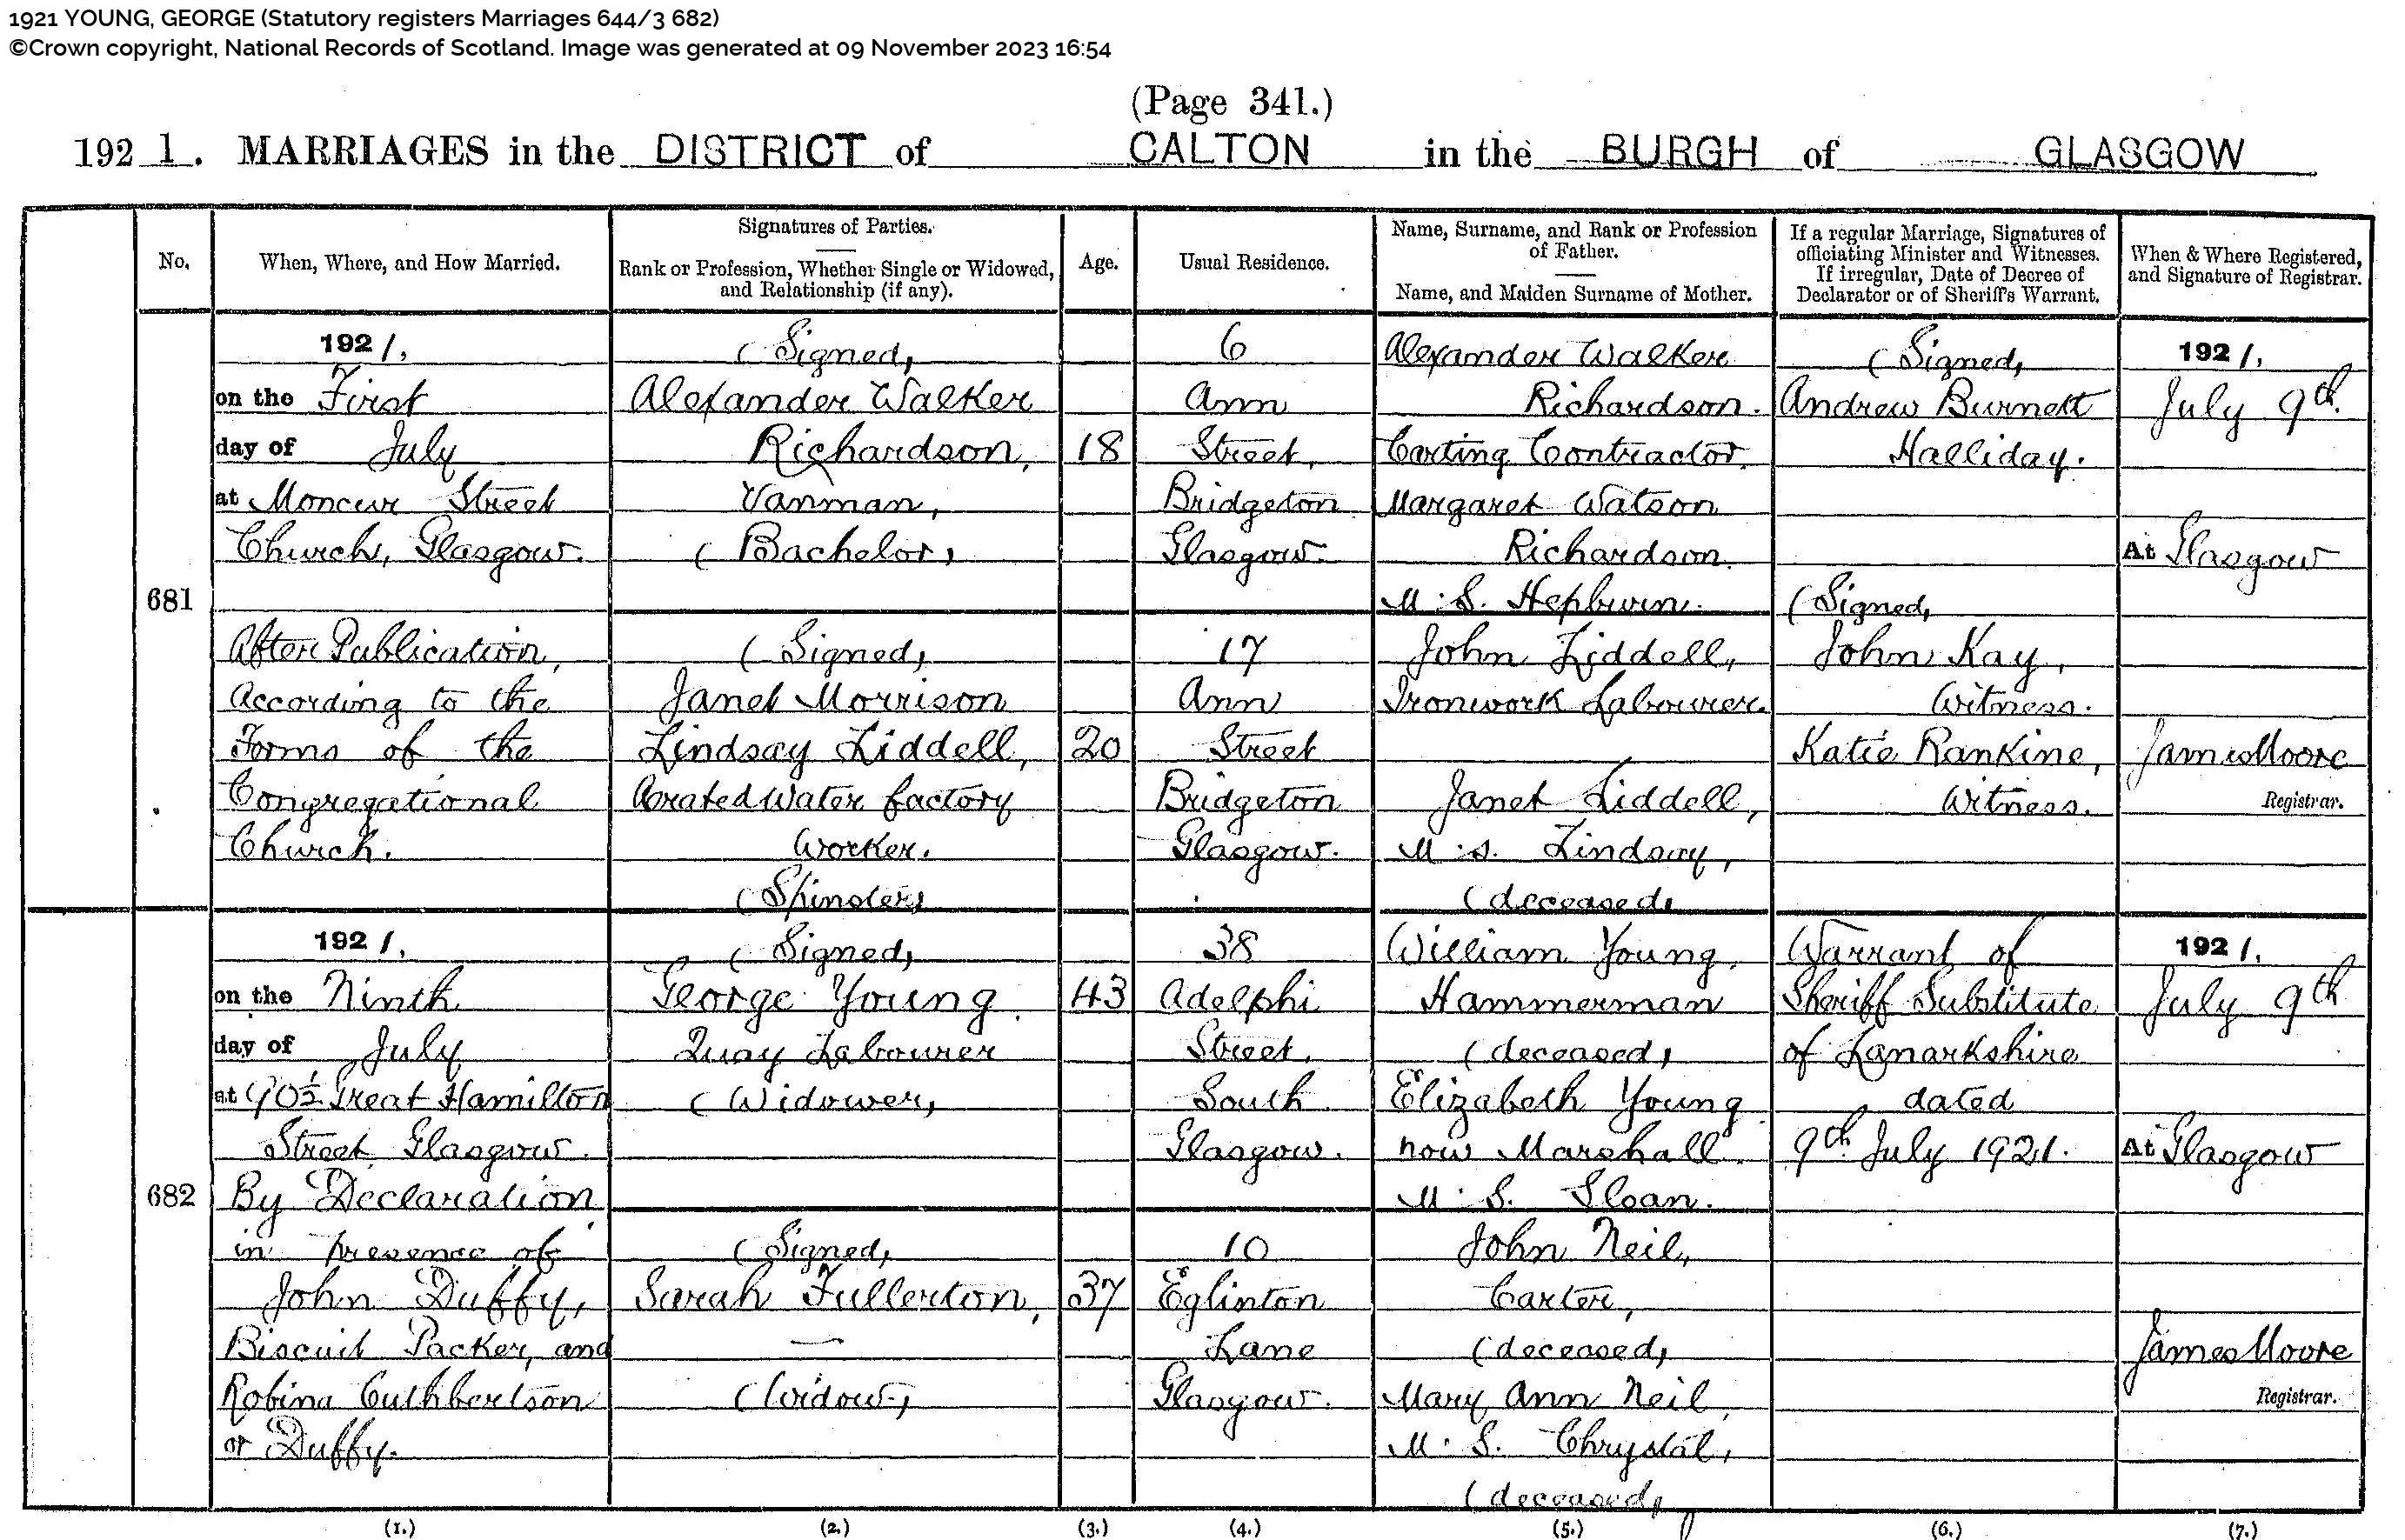 1921 YOUNG, GEORGE (Statutory registers Marriages 644/3 682)
©Crown copyright, National Records of Scotland. Image was generated at 09 November 2023 16:54
(Page 341.)
1921. MARRIAGES in the DISTRICT of CALTON in the BURGH of GLASGOW
No.
When, Where, and How Married.
Signatures of Parties.
Rank or Profession, Whether Single or Widowed,
and Relationship (if any).
Age.
Usual Residence.
Name, Surname, and Rank or Profession
of Father.
Name, and Maiden Surname of Mother.
If a regular Marriage, Signatures of
officiating Minister and Witnesses.
If irregular, Date of Decree of
Declarator or of Sheriff's Warrant.
When & Where Registered,
and Signature of Registrar.
681
1921.
on the First
day of July
at Moncur Street
Church, Glasgow.
After Publication,
According to the
Forms of the
Congregational
Church.
(Signed,
Alexander Walker
Richardson,
Vanman,
(Bachelor,
(Signed,
Janet Morrison
Lindsay Liddell,
Aerated Water factory
Worker.
(Spinster,
18
20
6
Ann
Street,
Bridgeton
Glasgow.
17
Ann
Street
Bridgeton
Glasgow.
Alexander Walker
Richardson.
Carting Contractor.
Margaret Watson
Richardson.
M.S. Hepburn.
John Liddell,
Ironwork Labourer.
Janet Liddell,
M.S. Lindsay,
(deceased,
(Signed,
Andrew Burnett
Halliday.
(Signed,
John Kay,
Witness.
Katie Rankine,
Witness.
1921.
July 9th.
At Glasgow
James Moore
Registrar.
682
1921.
on the Ninth
day of July
at 90½ Great Hamilton
Street, Glasgow.
By Declaration
in presence of
John Duffy,
Biscuit Packer, and
Robina Cuthbertson
or Duffy.
(Signed,
George Young
Quay Labourer
(Widower,
(Signed,
Sarah Fullerton,
—
(Widow,
43
37
38
Adelphi
Street,
South
Glasgow.
10
Eglinton
Lane
Glasgow.
William Young,
Hammerman
(deceased,
Elizabeth Young
now Marshall
M.S. Sloan.
John Neil,
Carter,
(deceased,
Mary Ann Neil,
M.S. Chrystal,
(deceased,
Warrant of
Sheriff Substitute
of Lanarkshire
dated
9th July 1921.
1921.
July 9th
At Glasgow
James Moore
Registrar.
(1.) (2.) (3.) (4.) (5.) (6.) (7.)